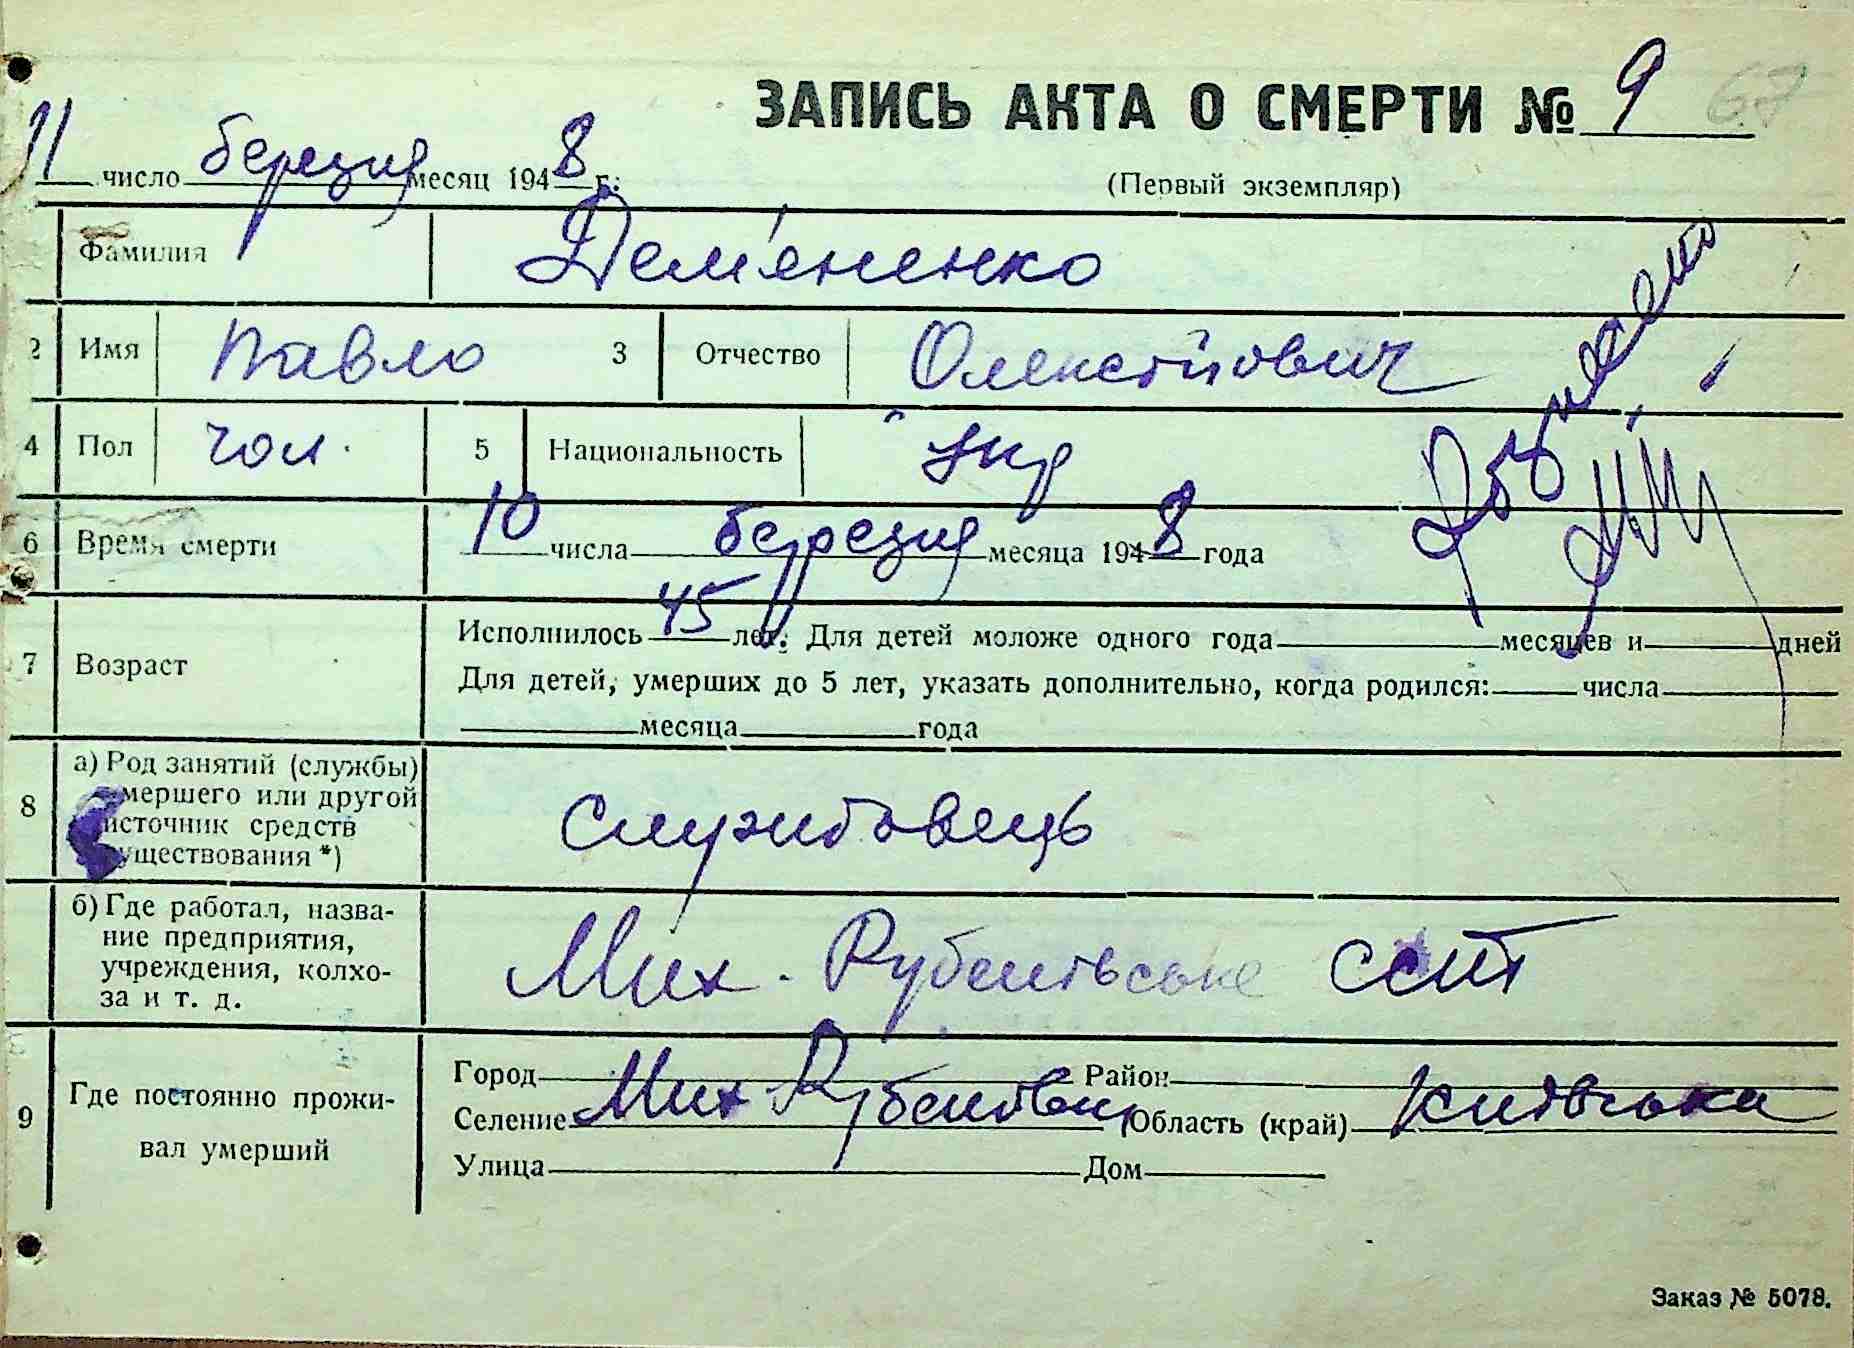 ЗАПИСЬ АКТА О СМЕРТИ № 9 67
11 число березня месяц 1948 г.
(Первый экземпляр)
Фамилия Дем'яненко
2 Имя Павло 3 Отчество Олексійович
4 Пол чол. 5 Национальность укр
6 Время смерти 10 числа березня месяца 1948 года
7 Возраст Исполнилось 45 лет. Для детей моложе одного года месяцев и дней
Для детей, умерших до 5 лет, указать дополнительно, когда родился: числа
месяца года
8 а) Род занятий (службы)
умершего или другой
источник средств
существования *)
службовець
б) Где работал, назва-
ние предприятия,
учреждения, колхо-
за и т. д.
Мих-Рубежівське ССТ
9 Где постоянно прожи-
вал умерший
Город Район
Селение Мих-Рубежівка Область (край) Київська
Улица Дом
Заказ № 5078.